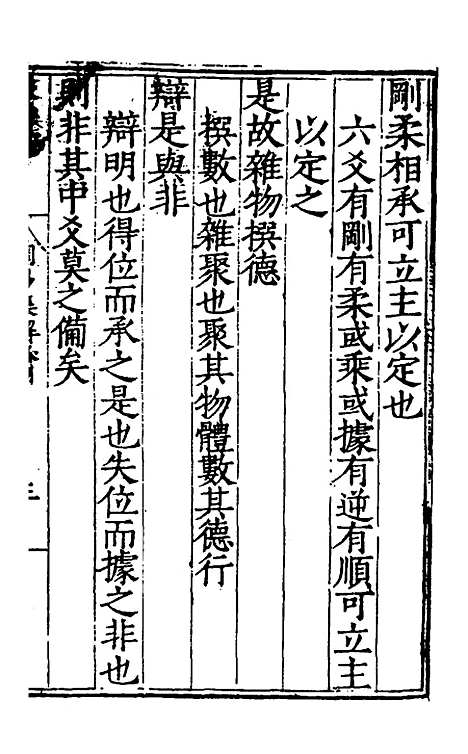 剛柔相承可立主以定也
六爻有剛有柔或乘或據有逆有順可立主
以定之
是故雜物撰德
撰數也雜聚也聚其物體數其德行
辯是與非
辯明也得位而承之是也失位而據之非也
則非其中爻莫之備矣